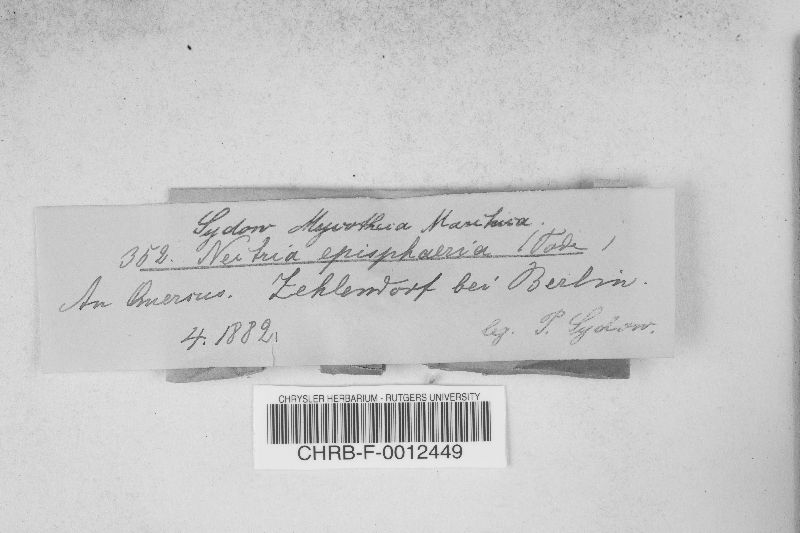 Sydow Mycotheca Marchica.
352. Nectria episphaeria (Tode)
An Quercus. Zehlendorf bei Berlin.
4. 1882. leg. P. Sydow.
CHRYSLER HERBARIUM - RUTGERS UNIVERSITY
CHRB-F-0012449